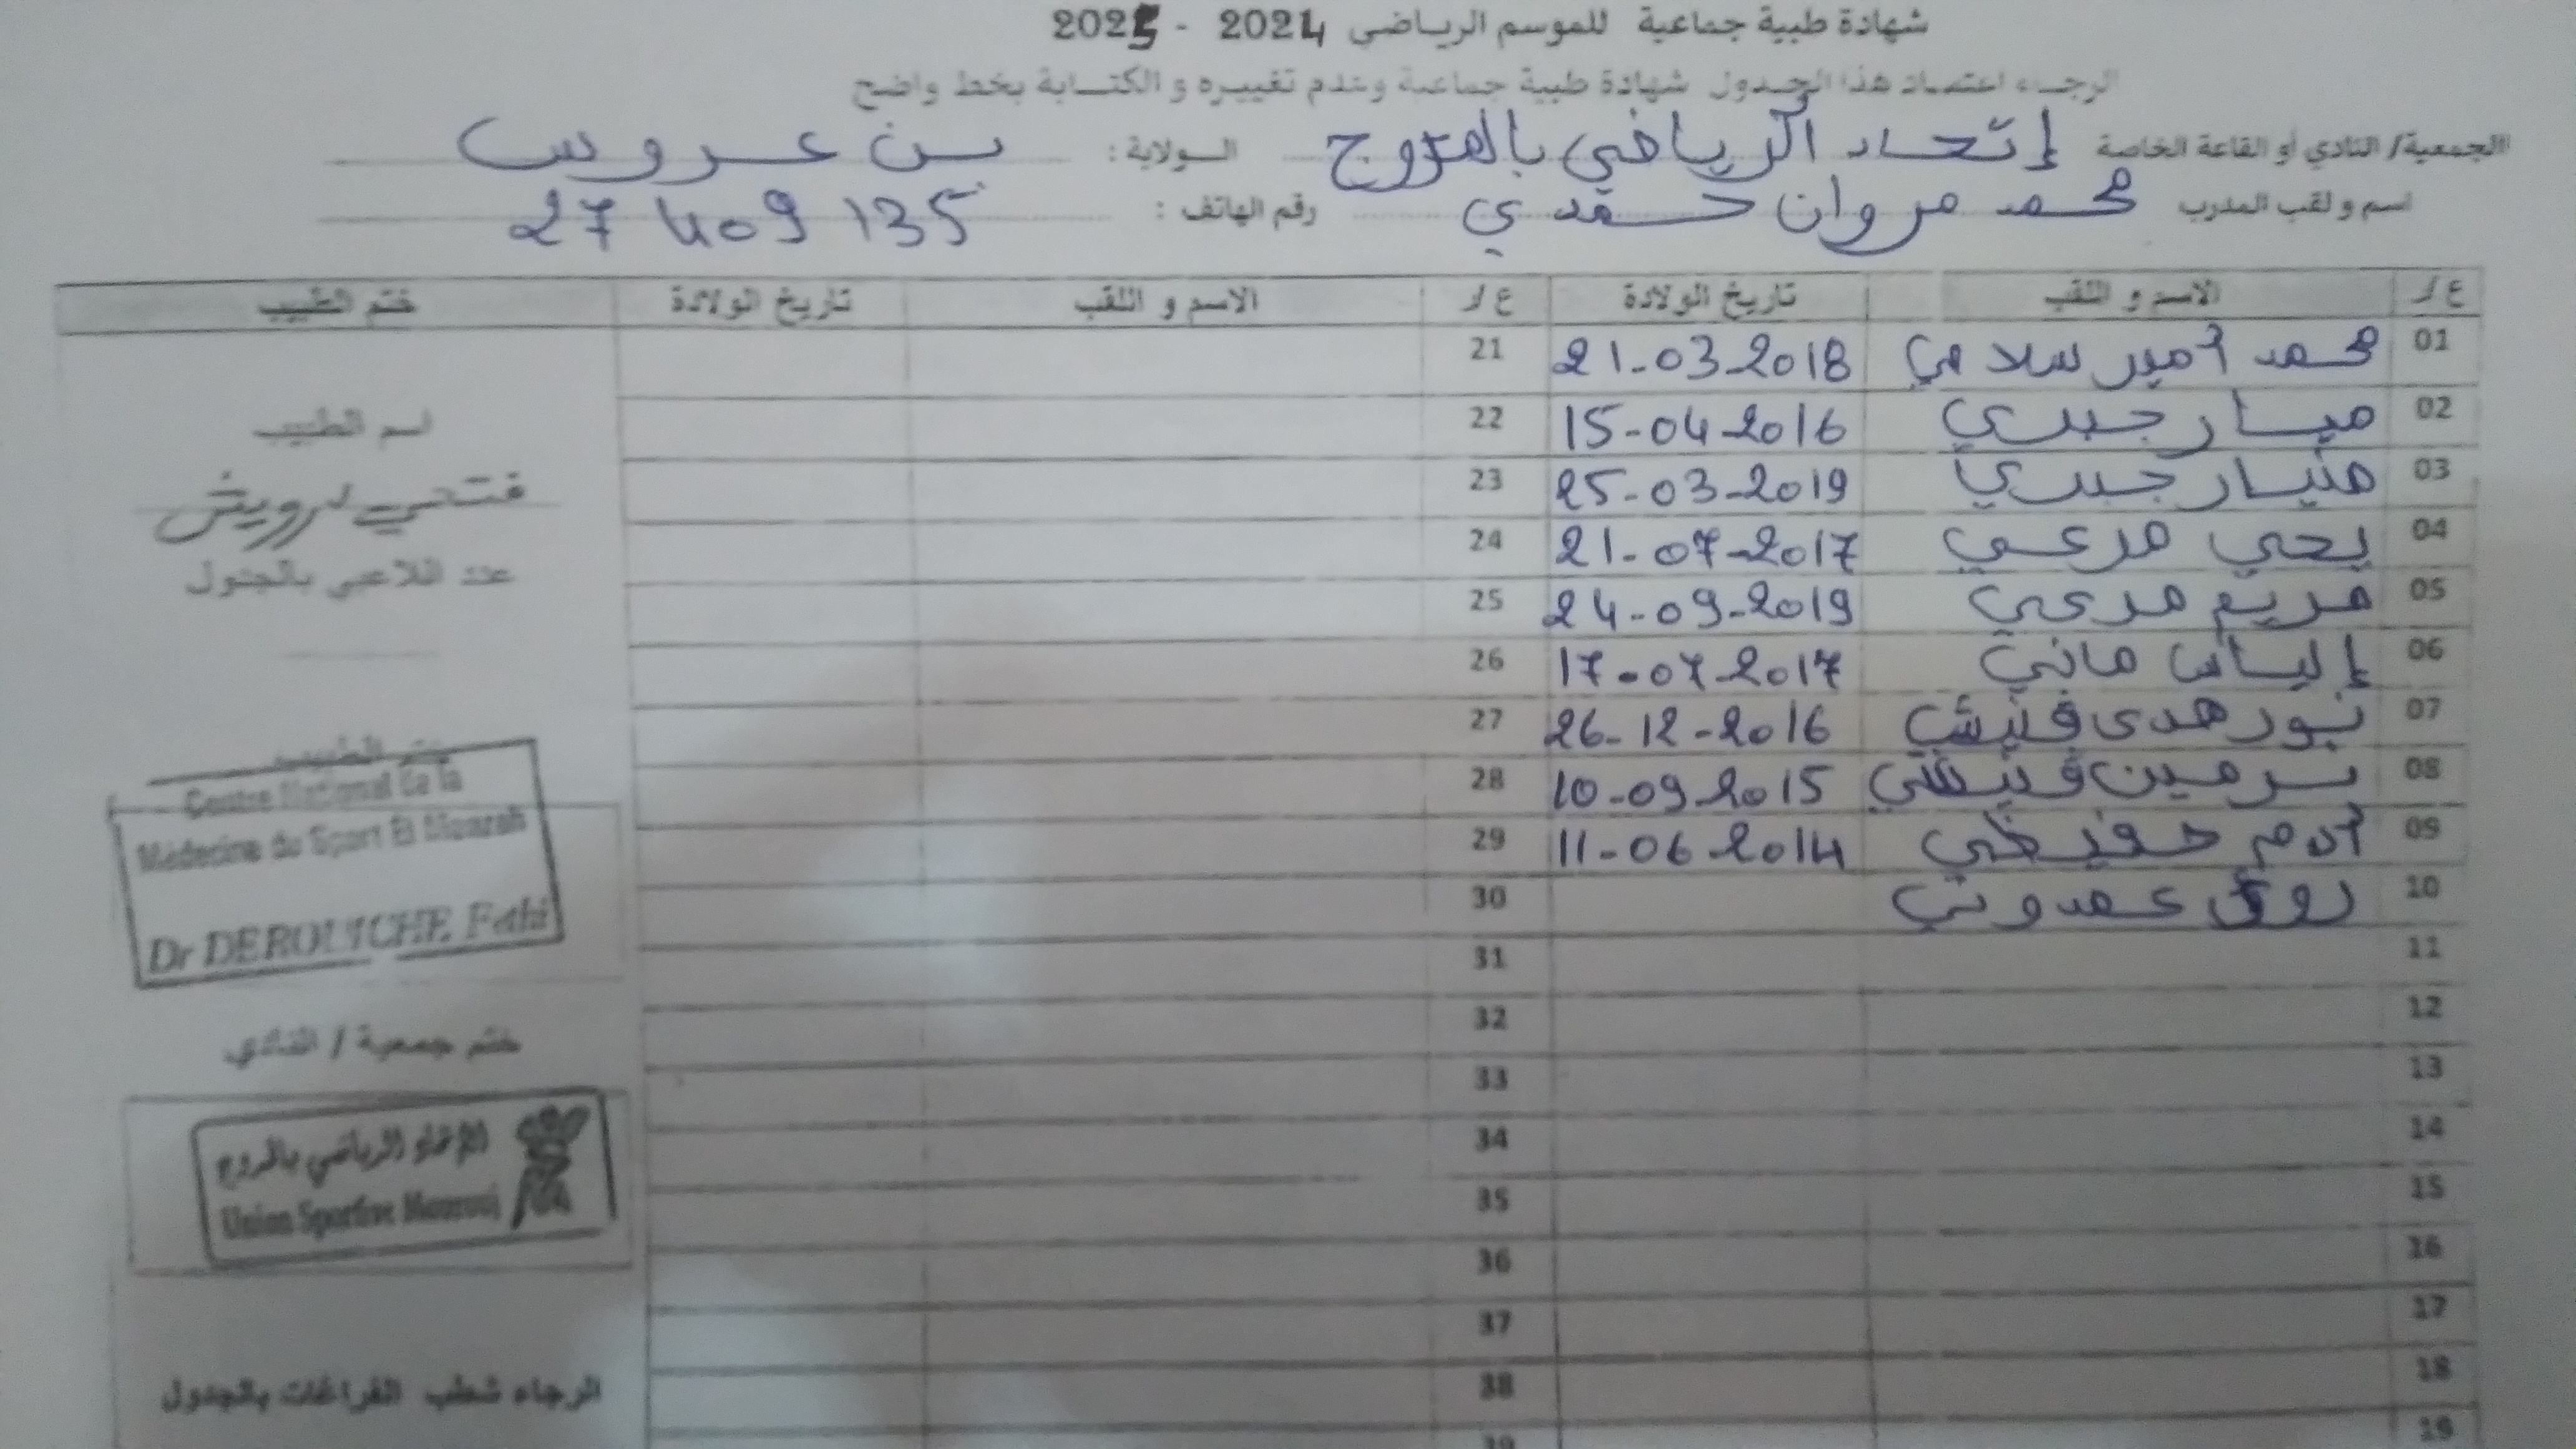 شهادة طبية جماعية للموسم الرياضي 2024 - 2025
الرجاء اعتماد هذا الجدول شهادة طبية جماعية وعدم تغييره و الكتابة بخط واضح
الجمعية/ النادي أو القاعة الخاصة إتحاد الرياضي بالمروج الولاية: بن عروس
اسم و لقب المدرب محمد مروان حمدي رقم الهاتف: 27 409 135
ع/ر الاسم و اللقب تاريخ الولادة ع/ر الاسم و اللقب تاريخ الولادة ختم الطبيب
01 محمد أمير سلامي 21-03-2018 21
02 ميار جبري 15-04-2016 22
03 جبري 25-03-2019 23
04 يحي مرعي 21-07-2017 24
05 مريم مرعي 24-09-2019 25
06 إلياس ماني 17-07-2017 26
07 نور هدى 26-12-2016 27
08 نرمين 10-09-2015 28
09 آدم 11-06-2014 29
10 عمدوني 30
11 31
12 32
13 33
14 34
15 35
16 36
17 37
18 38
19 39
اسم الطبيب
فتحي درويش
عدد اللاعبي بالجدول
ختم الطبيب
Centre National de la
Médecine du Sport El Menzah
Dr DEROUICHE Fethi
ختم جمعية / النادي
الإتحاد الرياضي بالمروج
Union Sportive Mourouj
الرجاء شطب الفراغات بالجدول